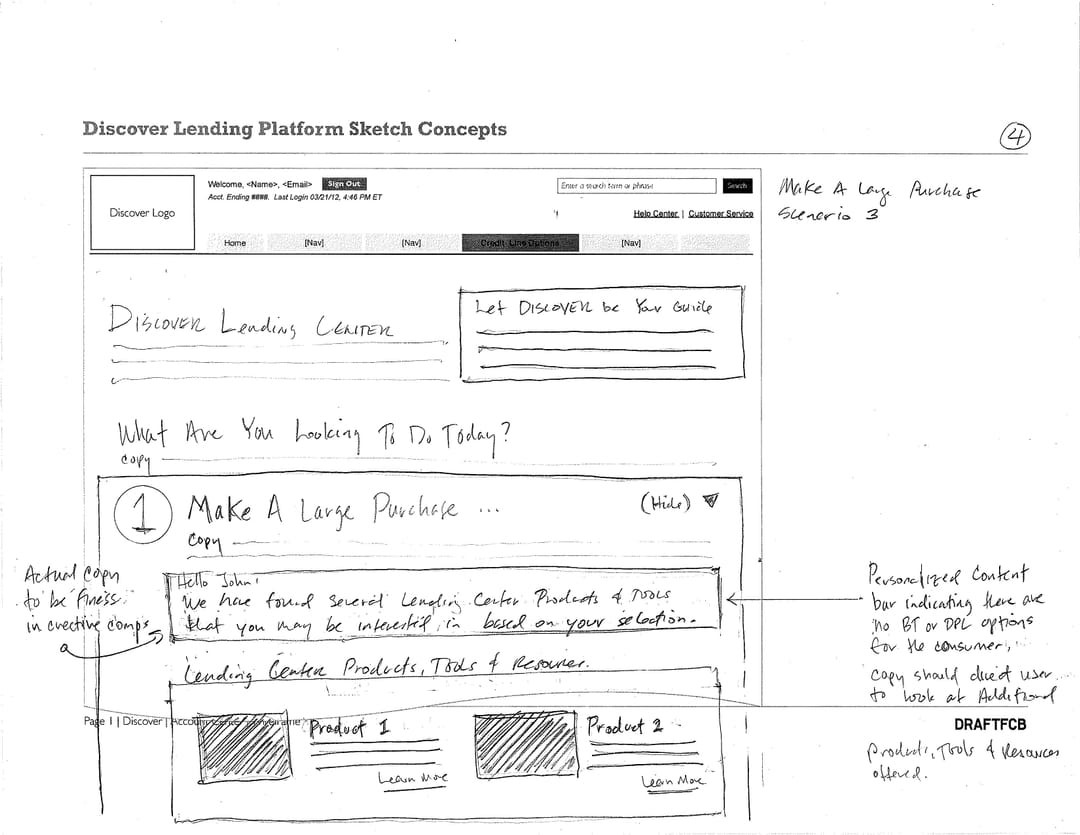 Discover Lending Platform Sketch Concepts
4
Discover Logo
Welcome, <Name>, <Email> Sign Out
Acct. Ending ####. Last Login 03/21/12, 4:46 PM ET
Enter a search term or phrase Search
Help Center | Customer Service
Home [Nav] [Nav] Credit Line Options [Nav]
Make A Large Purchase
Scenario 3
Discover Lending Center
Let Discover be Your Guide
What Are You Looking To Do Today?
Copy
1 Make A Large Purchase ... (Hide)
Copy
Actual Copy
to be
in creative comps
Hello John!
We have found several Lending Center Products & Tools
that you may be interested in based on your selection.
Personalized Content
bar indicating there are
no BT or DPL options
for the consumer,
copy should direct user
to look at Additional
Products, Tools & Resources
offered.
Lending Center Products, Tools & Resources.
Product 1
Learn More
Product 2
Learn More
Page 1 | Discover | Account
DRAFTFCB